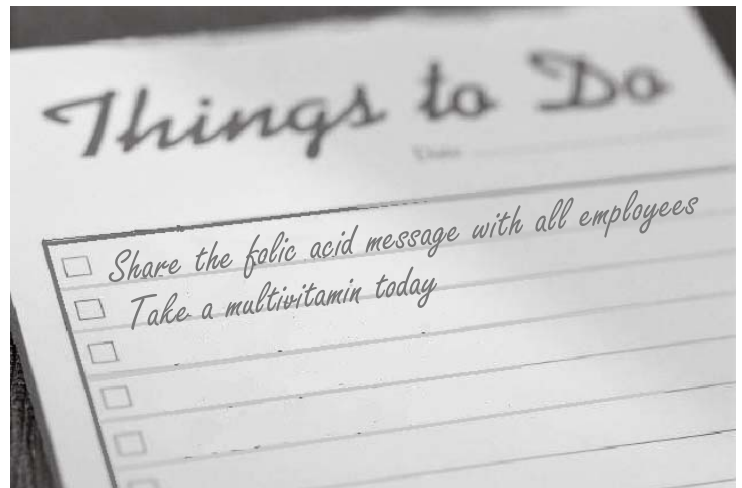 Things to Do
Date
Share the folic acid message with all employees
Take a multivitamin today